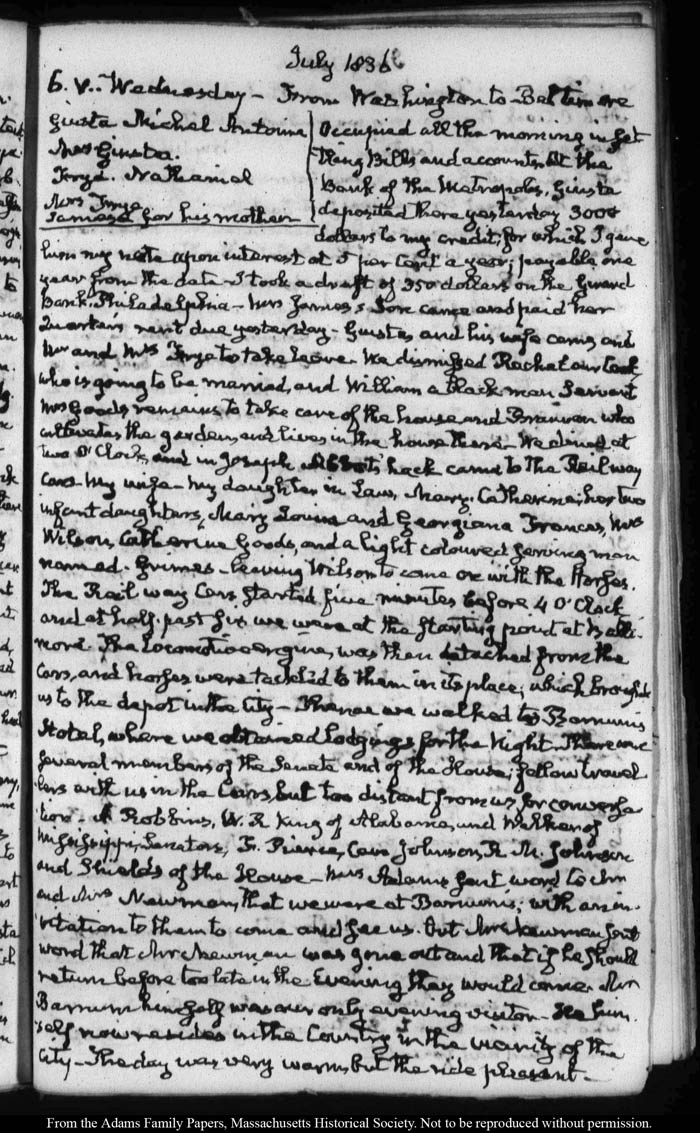 July 1836
6. V.. Wednesday – From Washington to Baltimore
Giusta Michel Antoine
Mrs Giusta.
Frye. Nathaniel
Mrs Frye
for his mother
Occupied all the morning in get
tling Bills and accounts. At the
Bank of the Metropolis, Giusta
deposited there yesterday 3000
dollars to my credit; for which I gave
him my note upon interest at 5 per Cent a year; payable one
year from the date – I took a draft of 350 dollars on the Girard
Bank Philadelphia – Mrs James's Son came and paid her
Quarter's rent due yesterday – Giusta and his wife came, and
Mr and Mrs Frye to take leave. We dismissed Rachel our Cook
who is going to be married, and William a black man Servant
Mrs Goods remains to take care of the house and Brannan who
cultivates the garden, and lives in the house there – We dined at
two O'Clock, and in Joseph hack came to the Railway
Cars – My wife – My daughter in Law, Mary. Catherine, her two
infant daughters, Mary Louisa and Georgiana Frances, Mrs
Wilson, Catherine Goods, and a light coloured serving man
named Grimes – leaving Wilson to come on with the Horses.
The Rail way Cars started five minutes before 4 O'Clock
and at half past six we were at the starting point at Balti-
more. The Locomotive engine, was then detached from the
Cars, and horses were tackled to them in its place; which brought
us to the depot in the City – Thence we walked to Barnum's
Hotel, where we obtained Lodgings for the Night. There were
several members of the Senate and of the House, fellow travel
lers with us in the Cars, but too distant from us for conversa
tion – A Robbins, W. R King of Alabama, and Walker of
Mississippi, Senators, F. Pierce, Cave Johnson, R. M. Johnson
and Shields of the House – Mrs Adams sent word to Mr
and Mrs Newman, that we were at Barnum's; with an in-
vitation to them to come and see us. But Mrs Newman sent
word that Mr Newman was gone out and that if he should
return before too late in the Evening they would come. Mr
Barnum himself was our only evening visitor – He him-
self now resides in the Country in the vicinity of the
City – The day was very warm, but the ride pleasant –
From the Adams Family Papers, Massachusetts Historical Society. Not to be reproduced without permission.